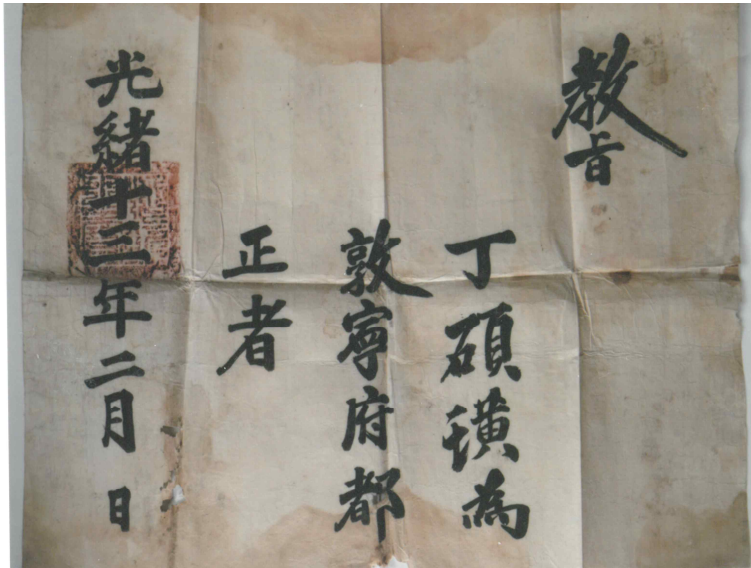 教旨
丁碩璜為
敦寧府都
正者
光緒十三年二月 日